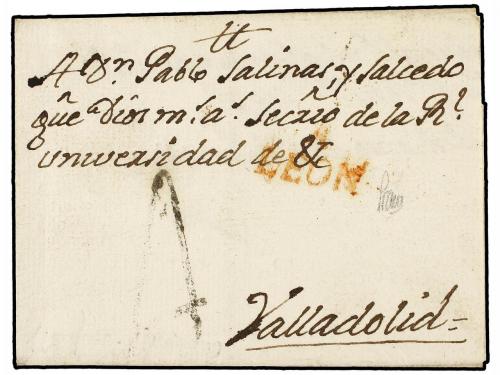 tt
A Dn. Pablo Salinas, y Salcedo
gũe. Dios ms. as. Secrio. de la Rl.
universidad de &c
LEON
4
Valladolid=